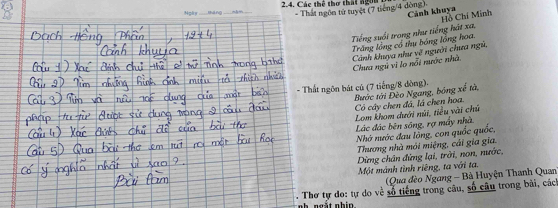 Ngày tháng năm
Bạch Hồng Phấn 12+4
Cảnh khuya
Câu 1) Xác định chủ thể trữ tình trong bài thơ
Câu 2) Tìm những hình ảnh miêu tả thiên nhiên
Câu 3) Tìm và nêu tác dụng của một biện
pháp tu từ được sử dụng trong 2 câu đầu
Câu 4) Xác định chủ đề của bài thơ
Câu 5) Qua bài thơ em rút ra một bài học
có ý nghĩa nhất vì sao?
Bài làm
2.4. Các thể thơ thất ngôn
- Thất ngôn tứ tuyệt (7 tiếng/4 dòng).
Cảnh khuya
Hồ Chí Minh
Tiếng suối trong như tiếng hát xa,
Trăng lồng cổ thụ bóng lồng hoa.
Cảnh khuya như vẽ người chưa ngủ,
Chưa ngủ vì lo nỗi nước nhà.
- Thất ngôn bát cú (7 tiếng/8 dòng).
Bước tới Đèo Ngang, bóng xế tà,
Cỏ cây chen đá, lá chen hoa.
Lom khom dưới núi, tiều vài chú
Lác đác bên sông, rợ mấy nhà.
Nhớ nước đau lòng, con quốc quốc,
Thương nhà mỏi miệng, cái gia gia.
Dừng chân đứng lại, trời, non, nước,
Một mảnh tình riêng, ta với ta.
(Qua đèo Ngang – Bà Huyện Thanh Quan
. Thơ tự do: tự do về số tiếng trong câu, số câu trong bài, cách
ngắt nhịp.